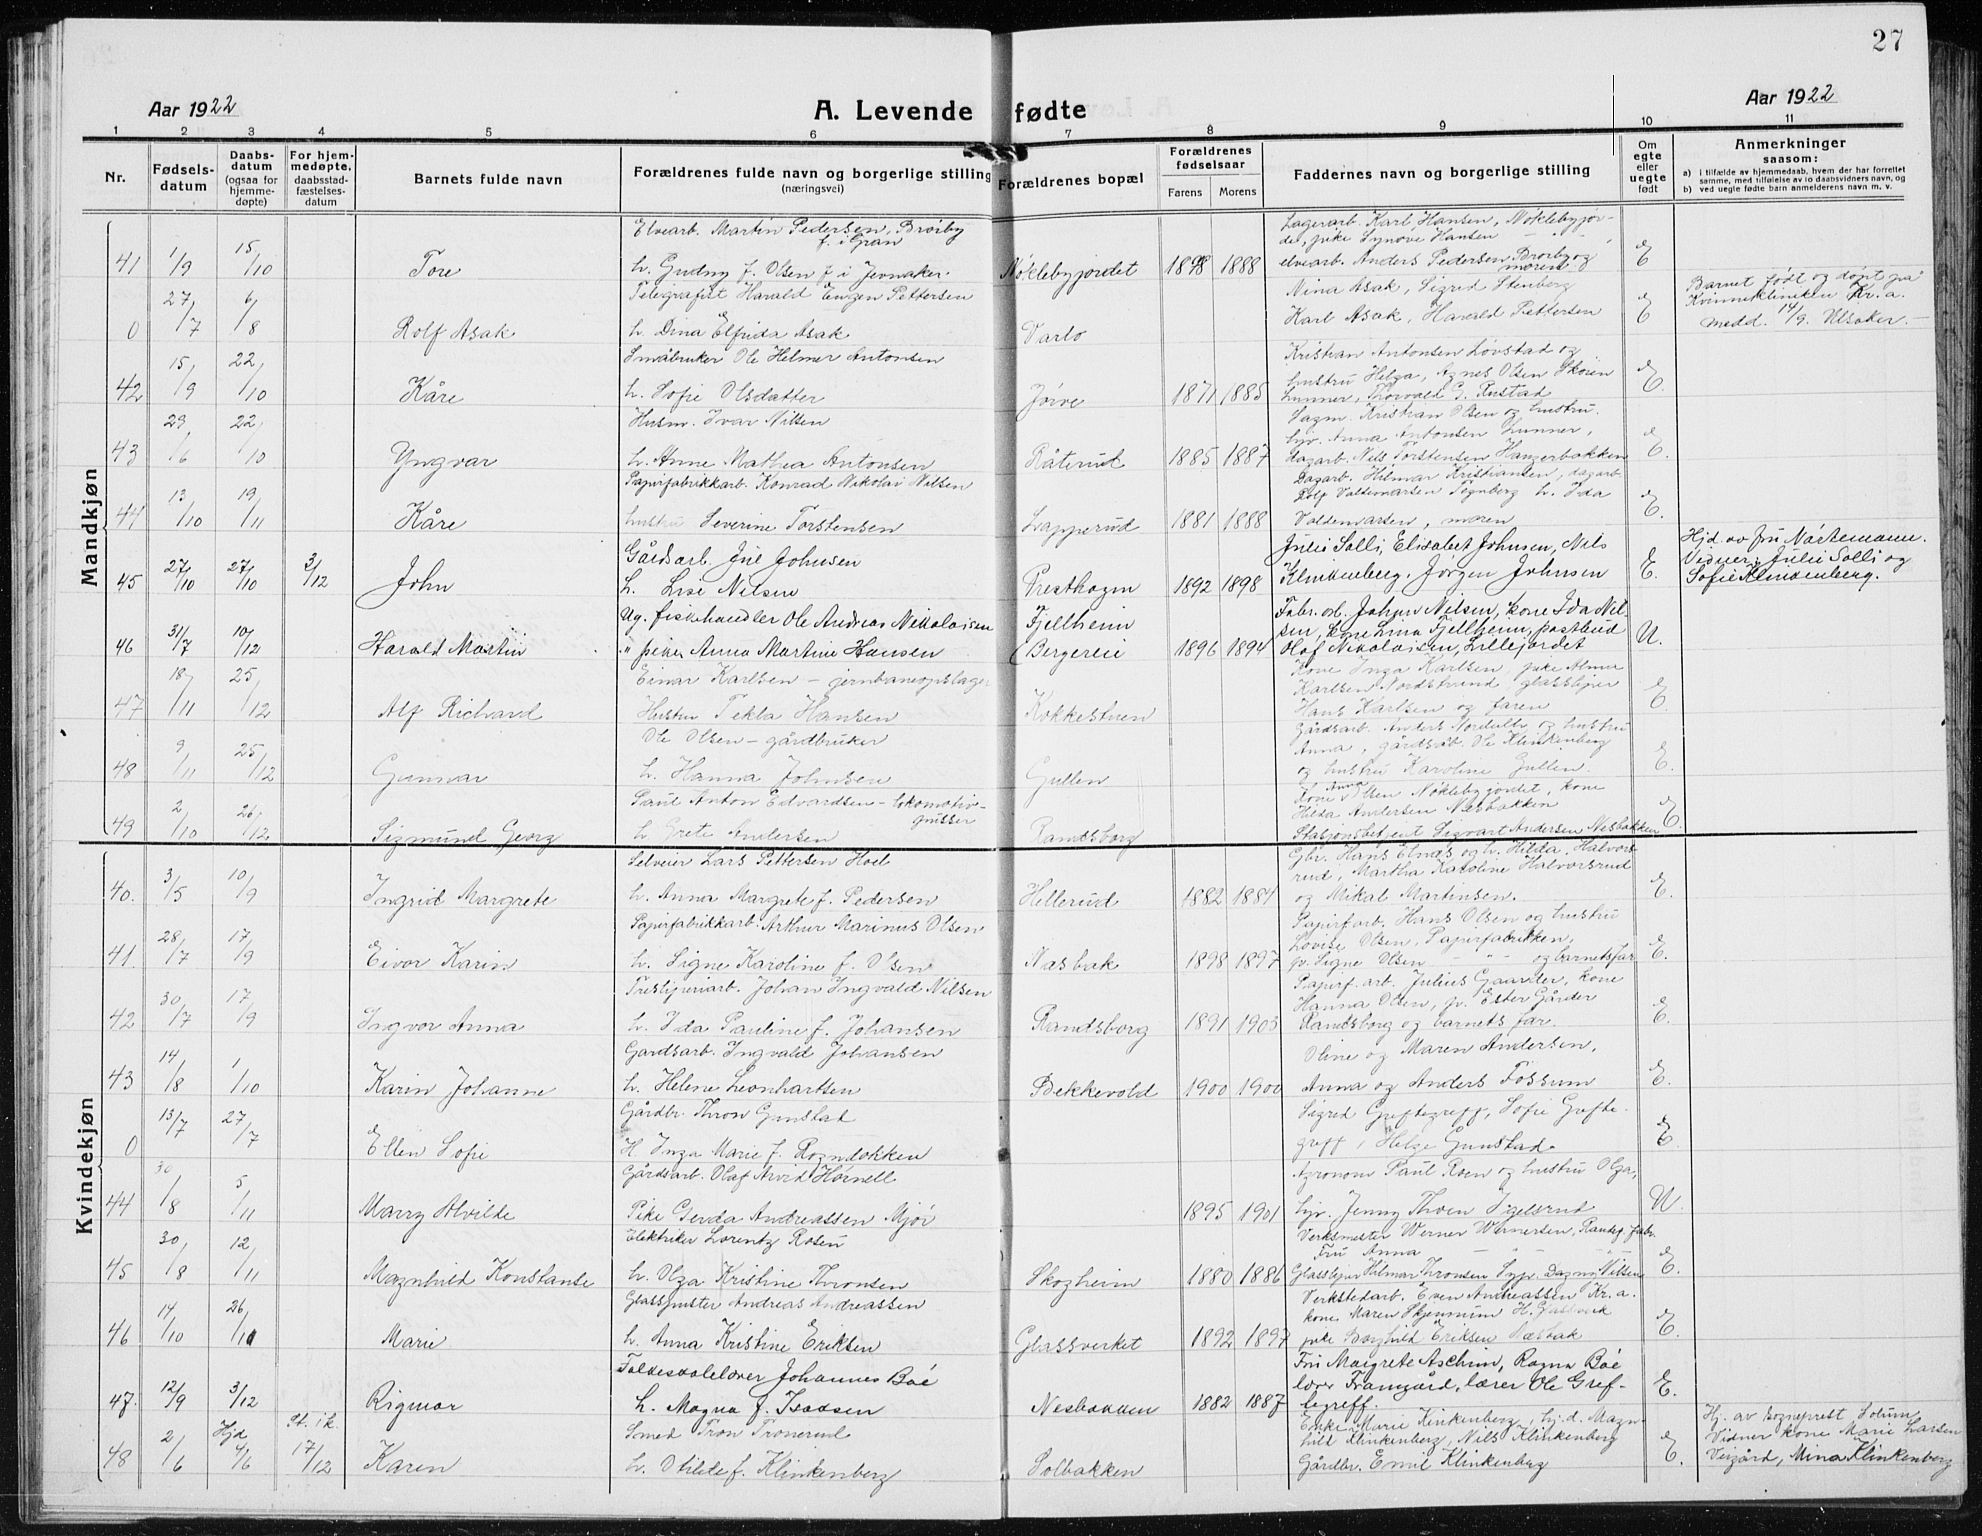 27
Aar 1922
A. Levende fødte
Aar 1922
1 2 3 4 5 6 7 8 9 10 11
Nr.
Fødsels-
datum
Daabs-
datum
(ogsaa for
hjemme-
døpte)
For hjem-
medøpte,
daabsstad-
fæstelses-
datum
Barnets fulde navn
Forældrenes fulde navn og borgerlige stilling
(næringsvei)
Forældrenes bopæl
Forældrenes
fødselsaar
Farens Morens
Faddernes navn og borgerlige stilling
Om
egte
eller
uegte
født
Anmerkninger
saasom:
a) i tilfælde av hjemmedaab, hvem der har forrettet
samme, med tilføielse av to daabsvidners navn, og
b) ved uegte fødte barn anmelderens navn m. v.
Mandkjøn
Elvearb. Martin Pedersen, Brørby
f. i Gran
Lagerarb. Karl Hansen, Nøklebyjor-
det, pike Synøve Hansen
41 1/9 15/10 Tore h. Gudny f. Olsen f. i Jevnaker Nøklebyjordet 1898 1888 elvearb. Anders Pedersen Brørby og
moren E
Telegrafist Harald Eugen Pettersen Nina Asak, Sigrid Stenberg
Barnet født og døpt på
Kvinneklinikken Kr.a.
0 27/7 6/8 Rolf Asak h. Dina Elfrida Asak Varlo Karl Asak, Harald Pettersen E medd. 14/9. Ulsaker.
Småbruker Ole Helmer Antonsen Kristian Antonsen Løvstad og
hustru Helga, Agnes Olsen Skøien
42 15/9 22/10 Kåre h. Sofie Olsdatter Jørve 1871 1885 Lunner, Thorvald G. Rustad E.
Husm. Ivar Nilsen Sagm. Kristian Olsen og hustru.
Anna Antonsen Lunner,
43 29/6 22/10 Yngvar h. Anne Mathea Antonsen Råterud 1885 1887 dagarb. Nils Torstensen Hangerbakken E.
Papirfabrikkarb. Konrad Nikolai Nilsen Dagarb. Hilmar Kristiansen, dagarb.
Rolf Valdemarsen Tegnberg h. Ida
44 13/10 19/11 Kåre hustru Severine Torstensen Lapperud 1881 1888 Valdemarsen, moren E.
Gårdsarb. Jul Johnsen Julie Solli, Elisabet Johnsen, Nils
Hjd. av fru Nørtemann.
Vidner: Julie Solli og
45 27/10 27/10 3/12 John h. Lise Nilsen Presthagen 1892 1898 Klinkenberg, Jørgen Johnsen E. Sofie Klinkenberg.
Ug. fiskehandler Ole Andreas Nikolaisen Fjellheim Fabr. arb. Johan Nilsen, kone Ida Nil-
sen, kone Lina Fjellheim, postbud
46 31/7 10/12 Harald Martin " pike Anna Martine Hansen Bergereie 1896 1894 Olaf Nikolaisen, Lillejordet U.
Einar Karlsen - jernbaneopslager Kone Inga Karlsen, pike Alma
Karlsen Nordstrand, glassliper
47 18/11 25/12 Alf Richard Hustru Tekla Hansen Kokkestuen Hans Karlsen og faren E.
Ole Olsen - gårdbruker Gårdsarb. Anders Nordeltz og hustru
Anna, gårdsarb. Ole Klinkenberg
48 9/11 25/12 Gunnar h. Hanna Johnsen Gullen og hustru Karoline Gullen. E.
Paul Anton Edvardsen - lokomotiv-
pusser
Kone Anna Olsen Nøklebyjordet, kone
Hilda Andersen Nesbakken
49 2/10 26/12 Sigmund Georg h. Grete Andersen Randsborg Stasjonsbetjent Sigvart Andersen Nesbakken E.
Kvindekjøn
Selveier Lars Pettersen Hoel Gbr. Hans Elnæs og h. Hilda, Halvors-
rud, Martha Karoline Halvorsrud
40. 3/5 10/9 Ingrid Margrete h. Anna Margrete f. Pedersen Hellerud 1882 1881 og Mikal Martinsen. E.
Papirfabrikkarb. Arthur Marinus Olsen Papirfarb. Hans Olsen og hustru
Lovise Olsen, Papirfabrikken,
41. 28/7 17/9 Eivor Karin h. Signe Karoline f. Olsen Næsbak 1898 1897 p. Signe Olsen - " - og barnets far E.
Tresliperiarb. Johan Ingvald Nilsen Papirf. arb. Julius Gaarder, kone
Hanna Olsen, p. Ester Gårder
42 30/7 17/9 Ingvor Anna h. Ida Pauline f. Johansen Randsborg 1891 1903 Randsborg og barnets far. E.
Gardsarb. Ingvald Johansen Oline og Maren Andersen,
43 14/8 1/10 Karin Johanne h. Helene Leonhartsen Bekkevold 1900 1900 Anna og Anders Fossum E.
Gårdbr. Thron Gunstad Sigrid Greftegreff, Sofie Grefte-
0 13/7 27/7 Ellen Sofie H. Inga Marie f. Rogndokken greff, Helge Gunstad E.
Gårdsarb. Olaf Arvid Hornell Agronom Paul Roen og hustru Olga,
44 30/8 5/11 Marry Alvilde Pike Gerda Andreassen Mjør 1895 1901 Jenny Thoen Igelsrud U.
Elektriker Lorentz Rosen Verksmester Werner Wernersen, Randsf. fabr.
Fru Anna - " - " -
45 30/8 12/11 Magnhild Konstanse h. Olga Kristine Thronsen Skogheim 1880 1886 Glassliper Hilmar Thronsen Dagny Nilsen E.
Glasspuster Andreas Andreassen Verkstedarb. Even Andreassen Kr.a.
kone Maren Skjennum H. Glassverk
46 14/10 26/11 Marie h. Anna Kristine Eriksen Glassverket 1892 1897 pike Borghild Eriksen Næsbak E.
Foldeskolelærer Johannes Boé Fru Margrete Aschim, Ragna Boé
lærer Framgård, lærer Ole Gref-
47 12/9 3/12 Rigmor h. Magna f. Isaksen Nesbakken 1882 1887 tegreff. E.
Hjd st. i k.
Smed Tron Tronerud Enke Marie Klinkenberg, hj.d. Magn-
hild Klinkenberg, Nils Klinkenberg
Hj. av Sogneprest Solum
Vidner kone Marie Larsen
48 2/6 4/6 17/12 Karen h. Otilde f. Klinkenberg Solbakken Gårdbr. Emil Klinkenberg E. Veigård, Mina Klinkenberg